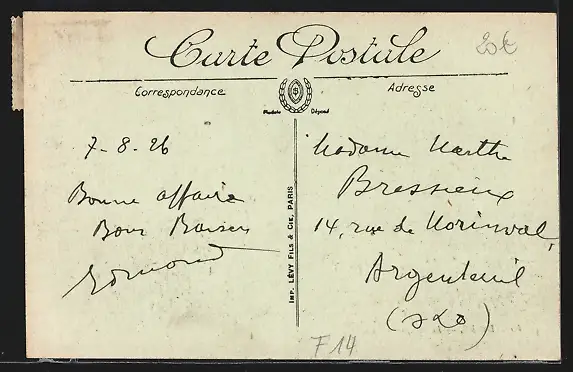 Carte Postale
20€
Correspondance
Adresse
Modèle Déposé
7-8-26
Bonne affaire
Bons Baisers
Edmond
IMP. LÉVY FILS & CIE, PARIS
Madame Marthe
Bressieux
14, rue de
Argenteuil
(S&O)
F14